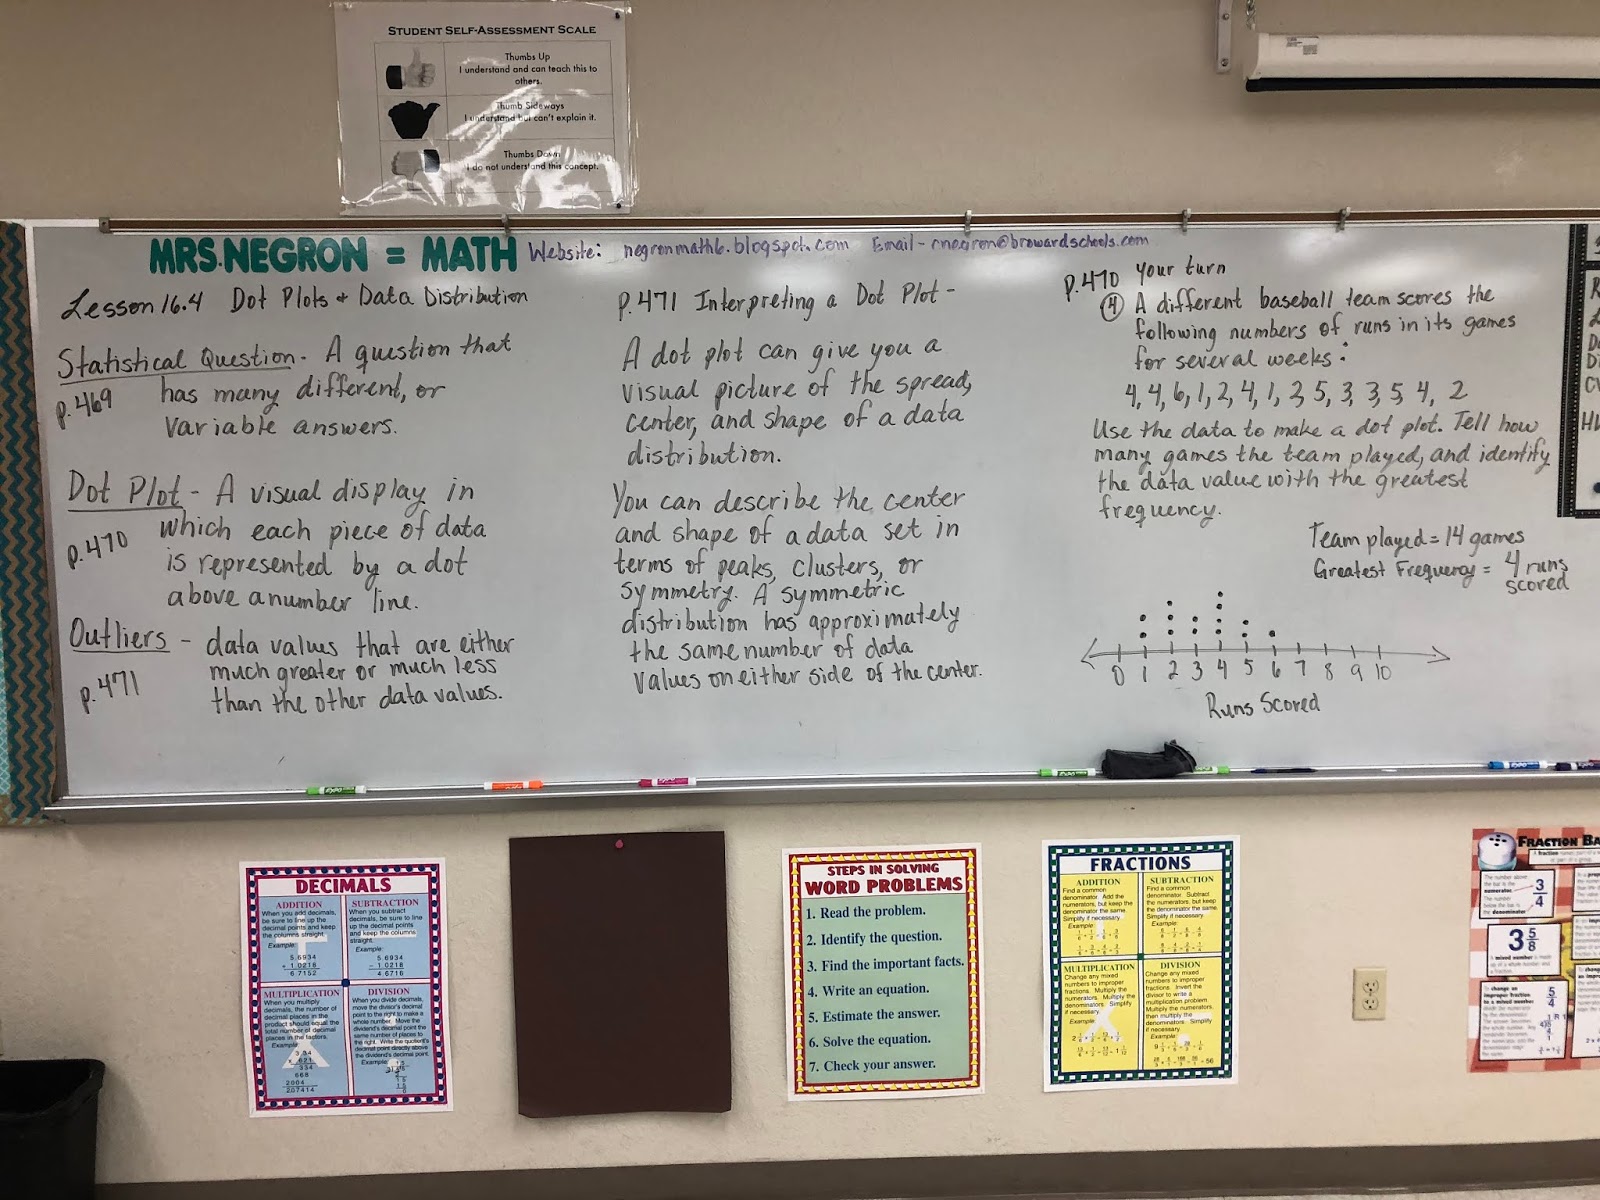 STUDENT SELF-ASSESSMENT SCALE
Thumbs Up
I understand and can teach this to
others.
Thumb Sideways
I understand but can't explain it.
Thumbs Down
I do not understand this concept.
MRS. NEGRON = MATH
Website: negronmath6.blogspot.com Email - cnegron@browardschools.com
Lesson 16.4 Dot Plots + Data Distribution
Statistical Question - A question that
p.469 has many different, or
variable answers.
Dot Plot - A visual display in
p.470 which each piece of data
is represented by a dot
above a number line.
Outliers - data values that are either
much greater or much less
p.471 than the other data values.
P.471 Interpreting a Dot Plot -
A dot plot can give you a
visual picture of the spread,
center, and shape of a data
distribution.
You can describe the center
and shape of a data set in
terms of peaks, clusters, or
symmetry. A symmetric
distribution has approximately
the same number of data
values on either side of the center.
p.470 Your turn
4 A different baseball team scores the
following numbers of runs in its games
for several weeks:
4, 4, 6, 1, 2, 4, 1, 2, 5, 3, 3, 5, 4, 2
Use the data to make a dot plot. Tell how
many games the team played, and identify
the data value with the greatest
frequency.
Team played = 14 games
Greatest Frequency = 4 runs
scored
0 1 2 3 4 5 6 7 8 9 10
Runs Scored
DECIMALS
ADDITION
When you add decimals,
be sure to line up the
decimal points and keep
the columns straight.
Example:
5.6934
+ 1.0218
6.7152
SUBTRACTION
When you subtract
decimals, be sure to line
up the decimal points
and keep the columns
straight.
Example:
5.6934
- 1.0218
4.6716
MULTIPLICATION
When you multiply
decimals, the number of
decimal places in the
product should equal the
total number of decimal
places in the factors.
Example:
3.34
x .621
334
668
2004
2.07414
DIVISION
When you divide decimals,
move the divisor's decimal
point to the right to make a
whole number. Move the
dividend's decimal point the
same number of places to
the right. Write the quotient's
decimal point directly above
the dividend's decimal point.
Example:
STEPS IN SOLVING
WORD PROBLEMS
1. Read the problem.
2. Identify the question.
3. Find the important facts.
4. Write an equation.
5. Estimate the answer.
6. Solve the equation.
7. Check your answer.
FRACTIONS
ADDITION
Find a common
denominator. Add the
numerators, but keep the
denominator the same.
Simplify if necessary.
Example:
SUBTRACTION
Find a common
denominator. Subtract
the numerators, but keep
the denominator the same.
Simplify if necessary.
Example:
MULTIPLICATION
Change any mixed
numbers to improper
fractions. Multiply the
numerators. Multiply the
denominators. Simplify
if necessary.
Example:
DIVISION
Change any mixed
numbers to improper
fractions. Invert the
divisor to write a
multiplication problem.
Multiply the numerators,
then multiply the
denominators. Simplify
if necessary.
Example:
FRACTION BA
The number above
the bar is the
numerator.
The number
below the bar is
the denominator.
3/4
3 5/8
A mixed number is
To change an
improper fraction
to a mixed number
5/4